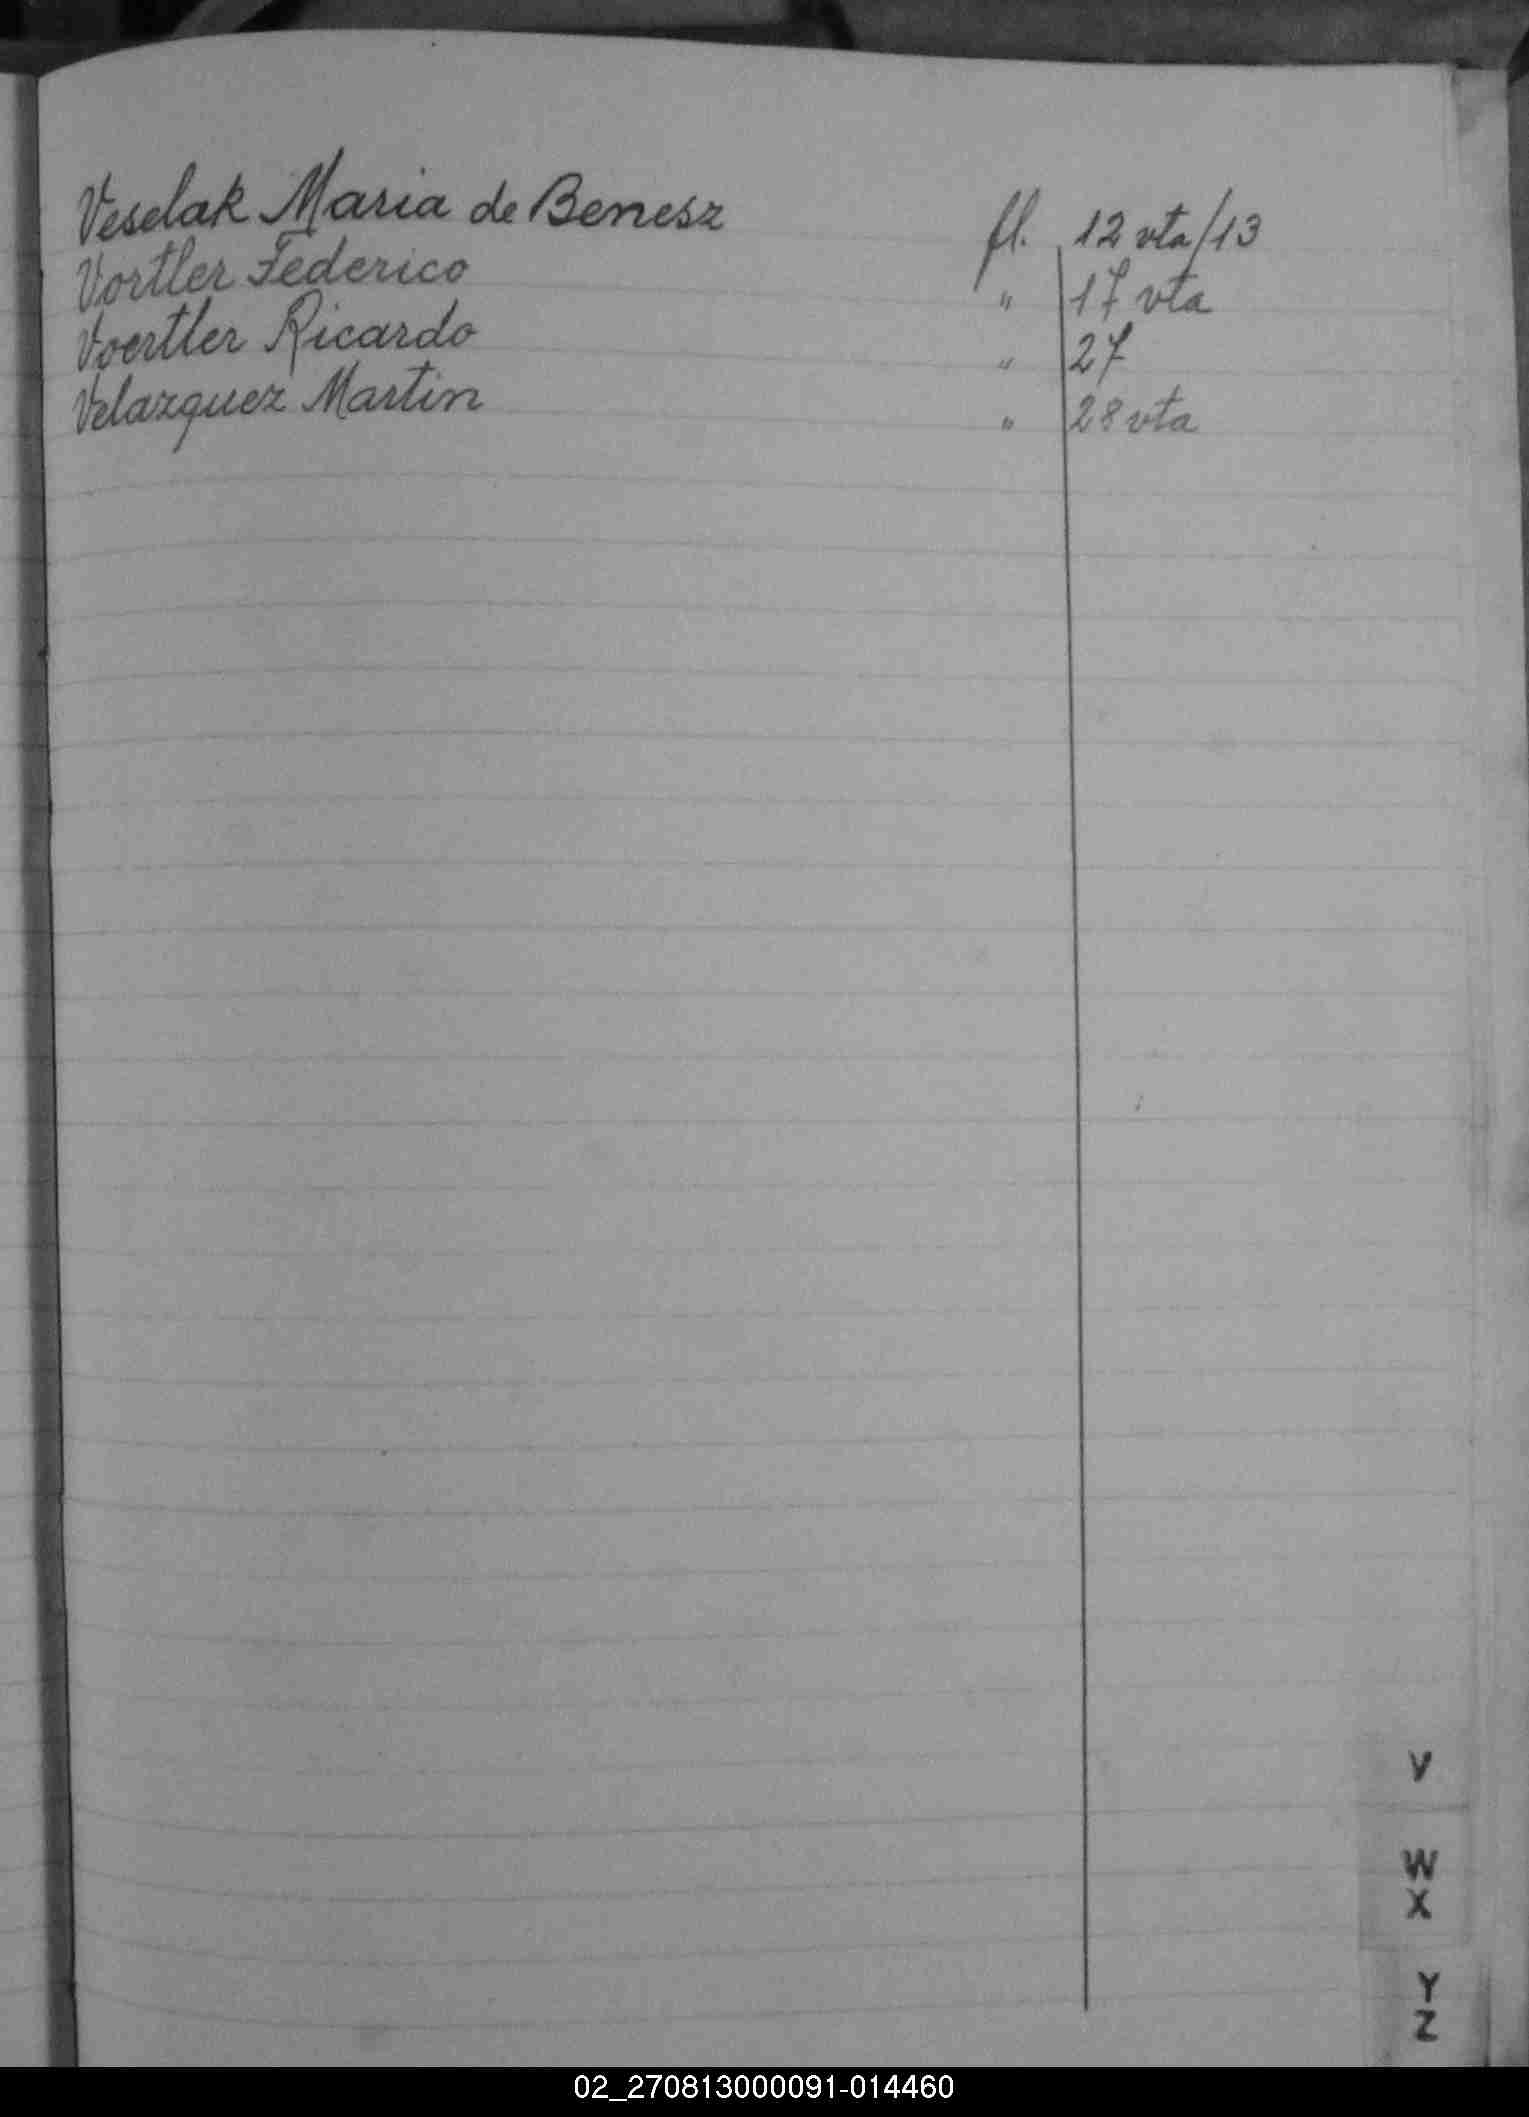 Veselak Maria de Benesz fl. 12 vta/13
Vortler Federico " 17 vta
Voertler Ricardo " 27
Velazquez Martin " 28 vta
V
W
X
Y
Z
02_270813000091-014460